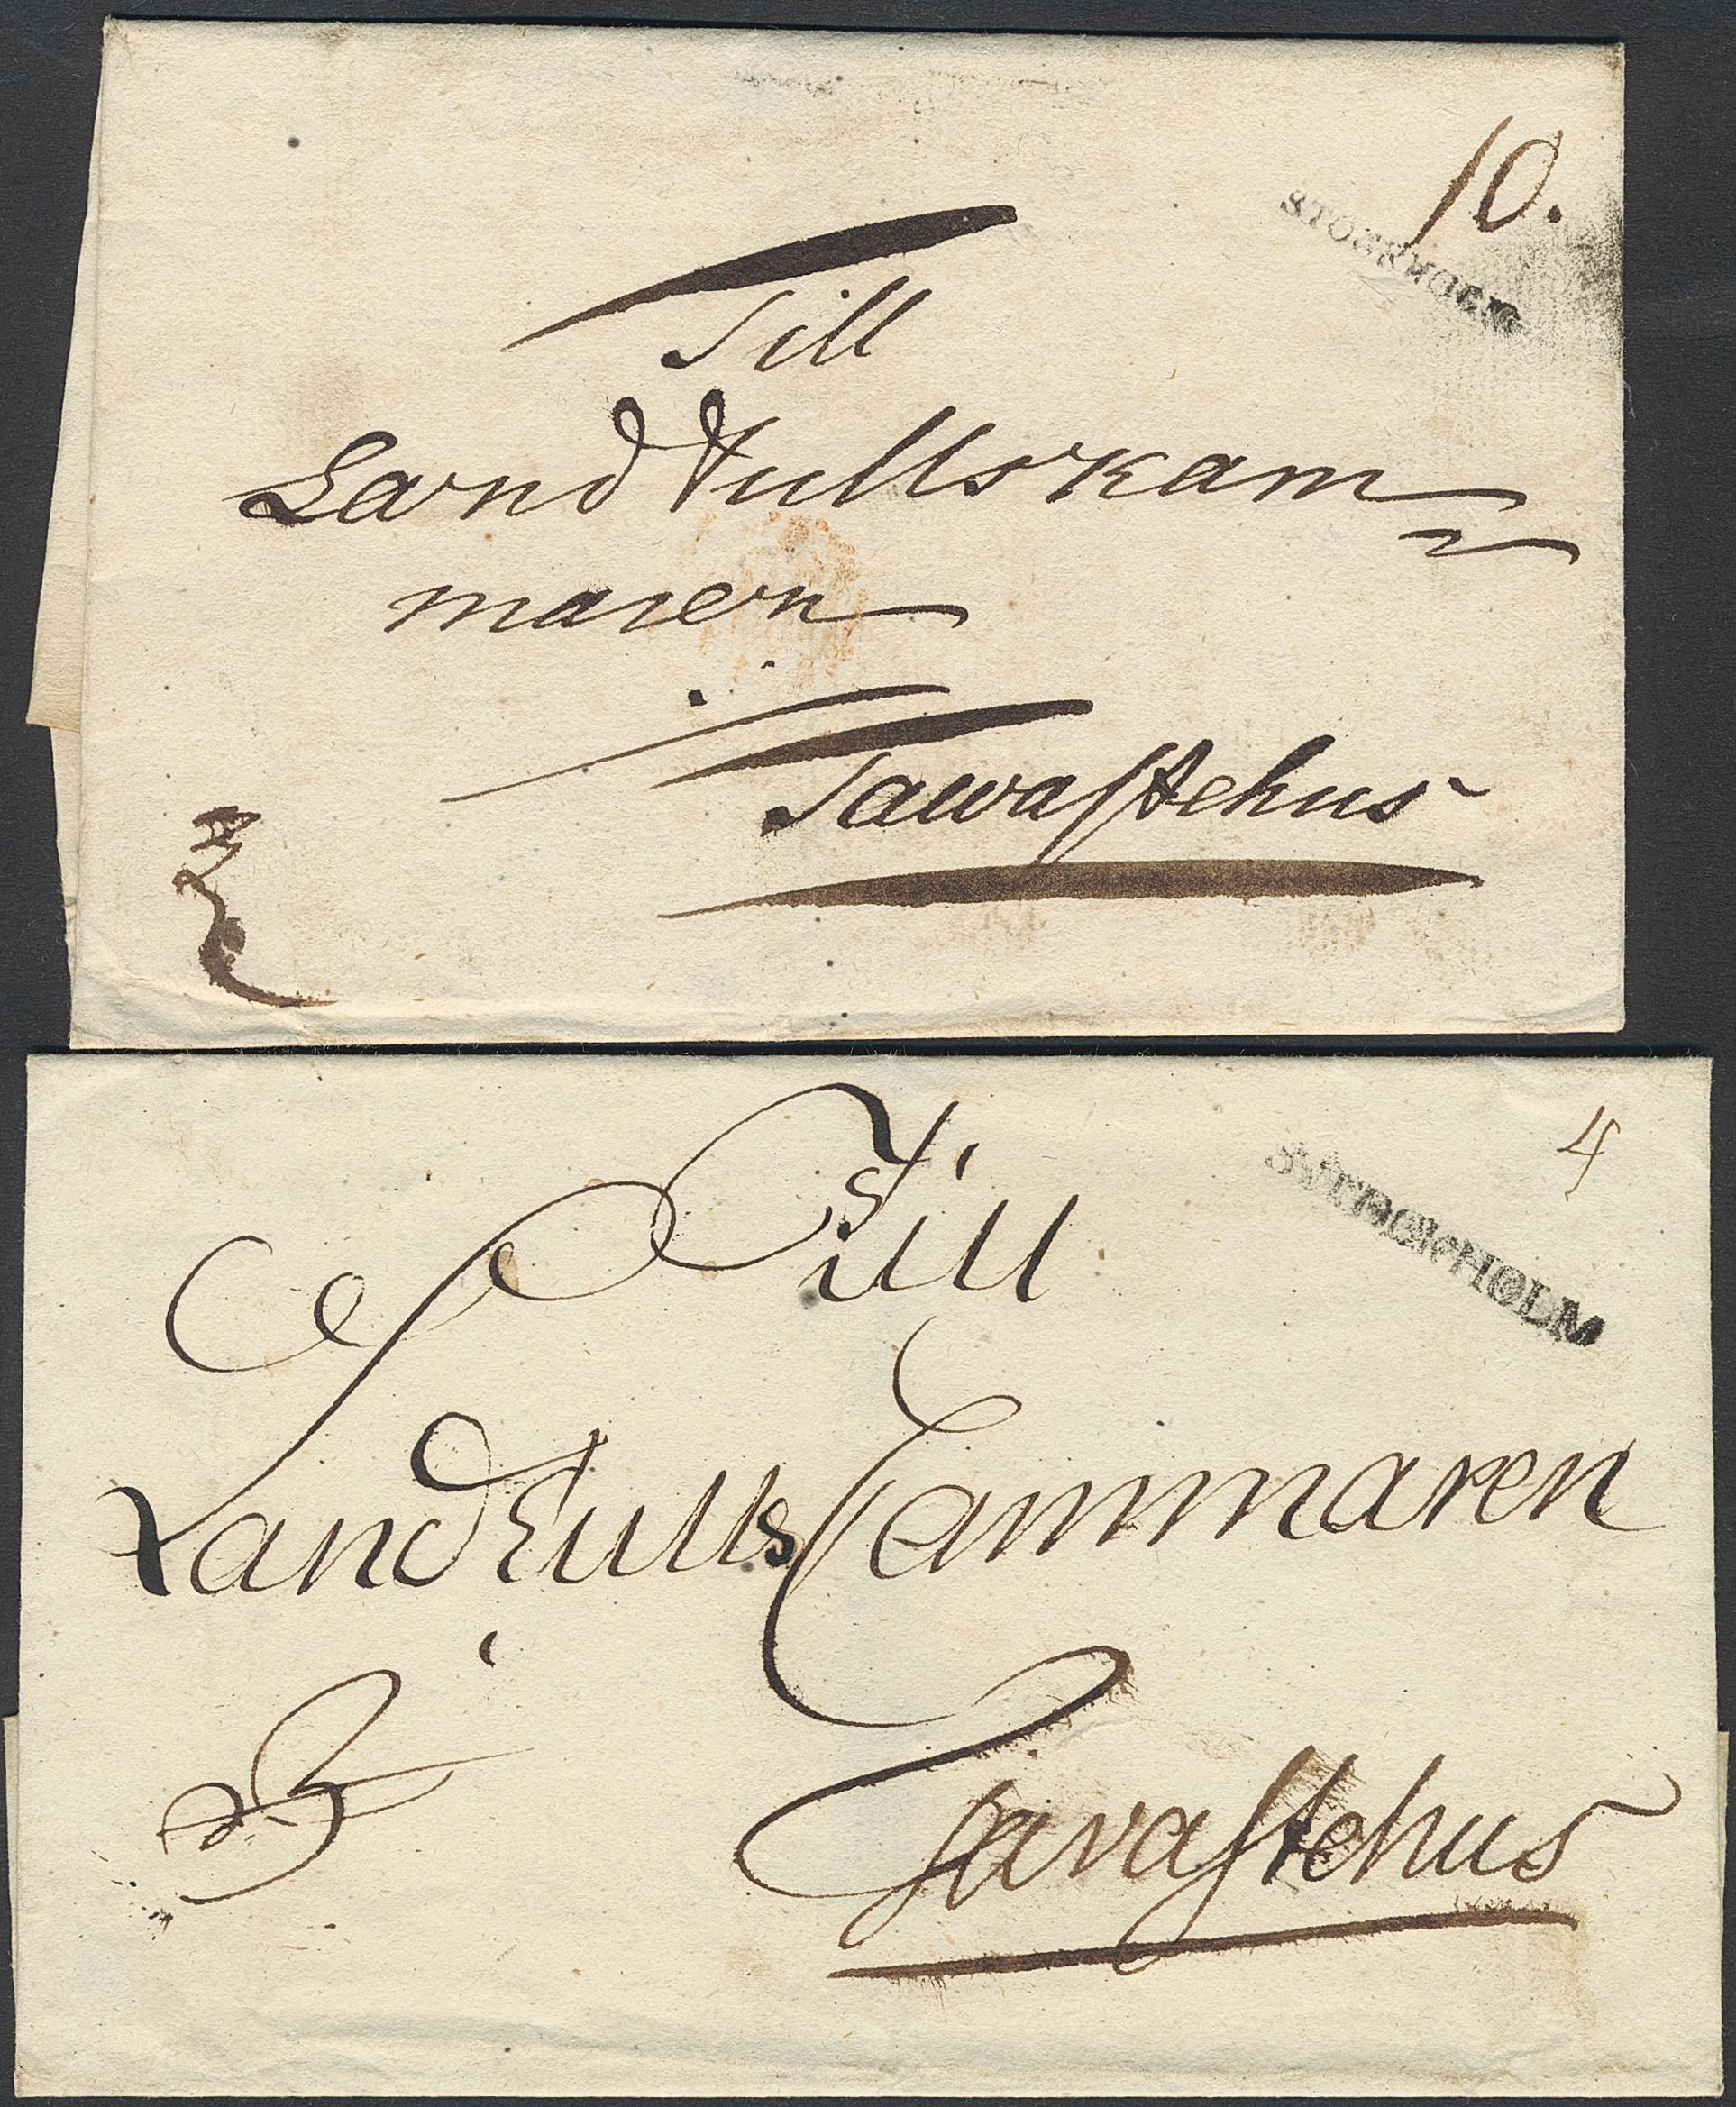 10.
STOCKHOLM
Till
Landtullskam
maren
Tawastehus
4
STOCKHOLM
Till
LandtullsCammaren
i
Tavastehus